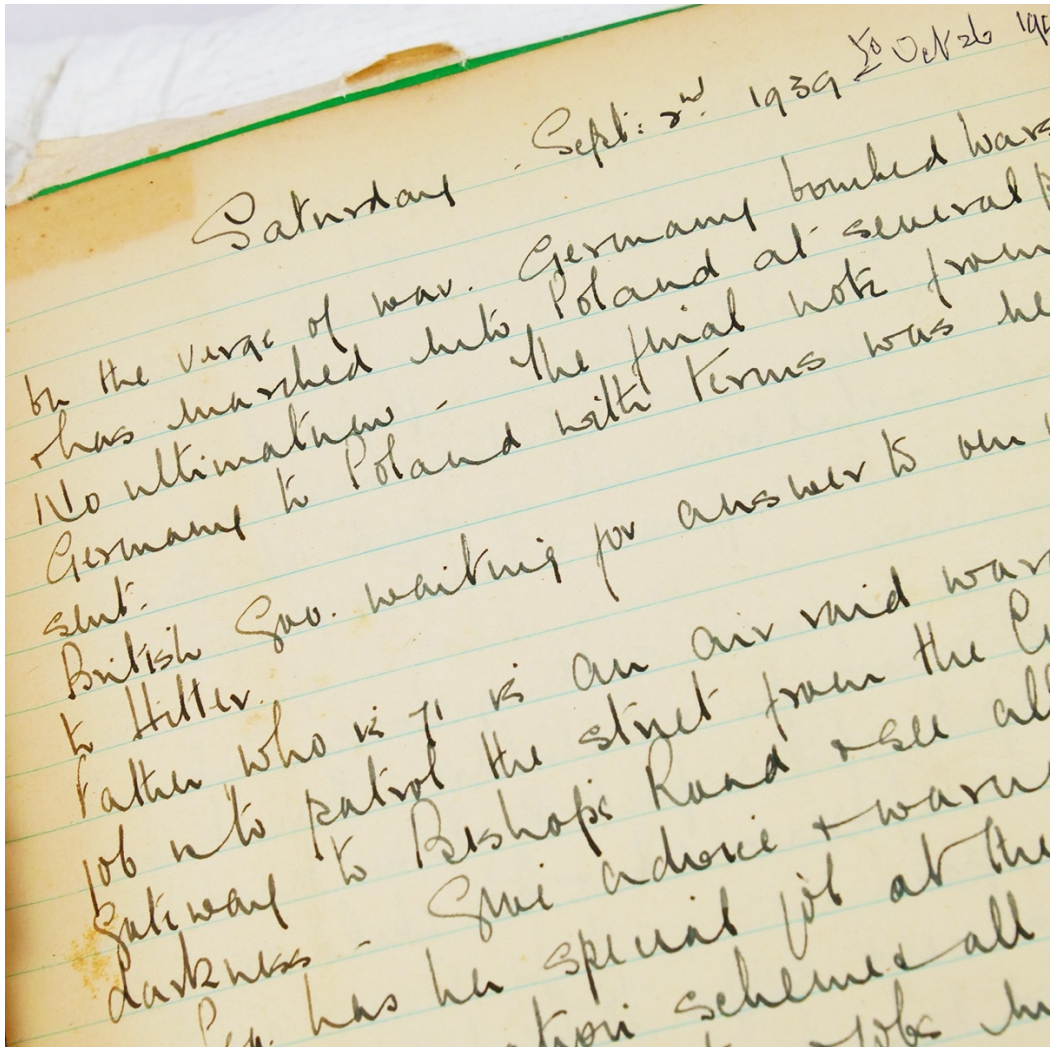 Saturday Sept: 2nd. 1939 to Oct 26 19
On the verge of war. Germany bombed Wars
& has marched into Poland at several p
No ultimatum - The final note from
Germany to Poland with terms was ne
sent.
British Gov. waiting for answer to our
to Hitler.
Father who is 71 is an air raid war
job is to patrol the street from the C
Gateway to Bishops Road & see all
darkness - Give advice & warn
Peg. has her special job at the
scheme & all
Jobs in